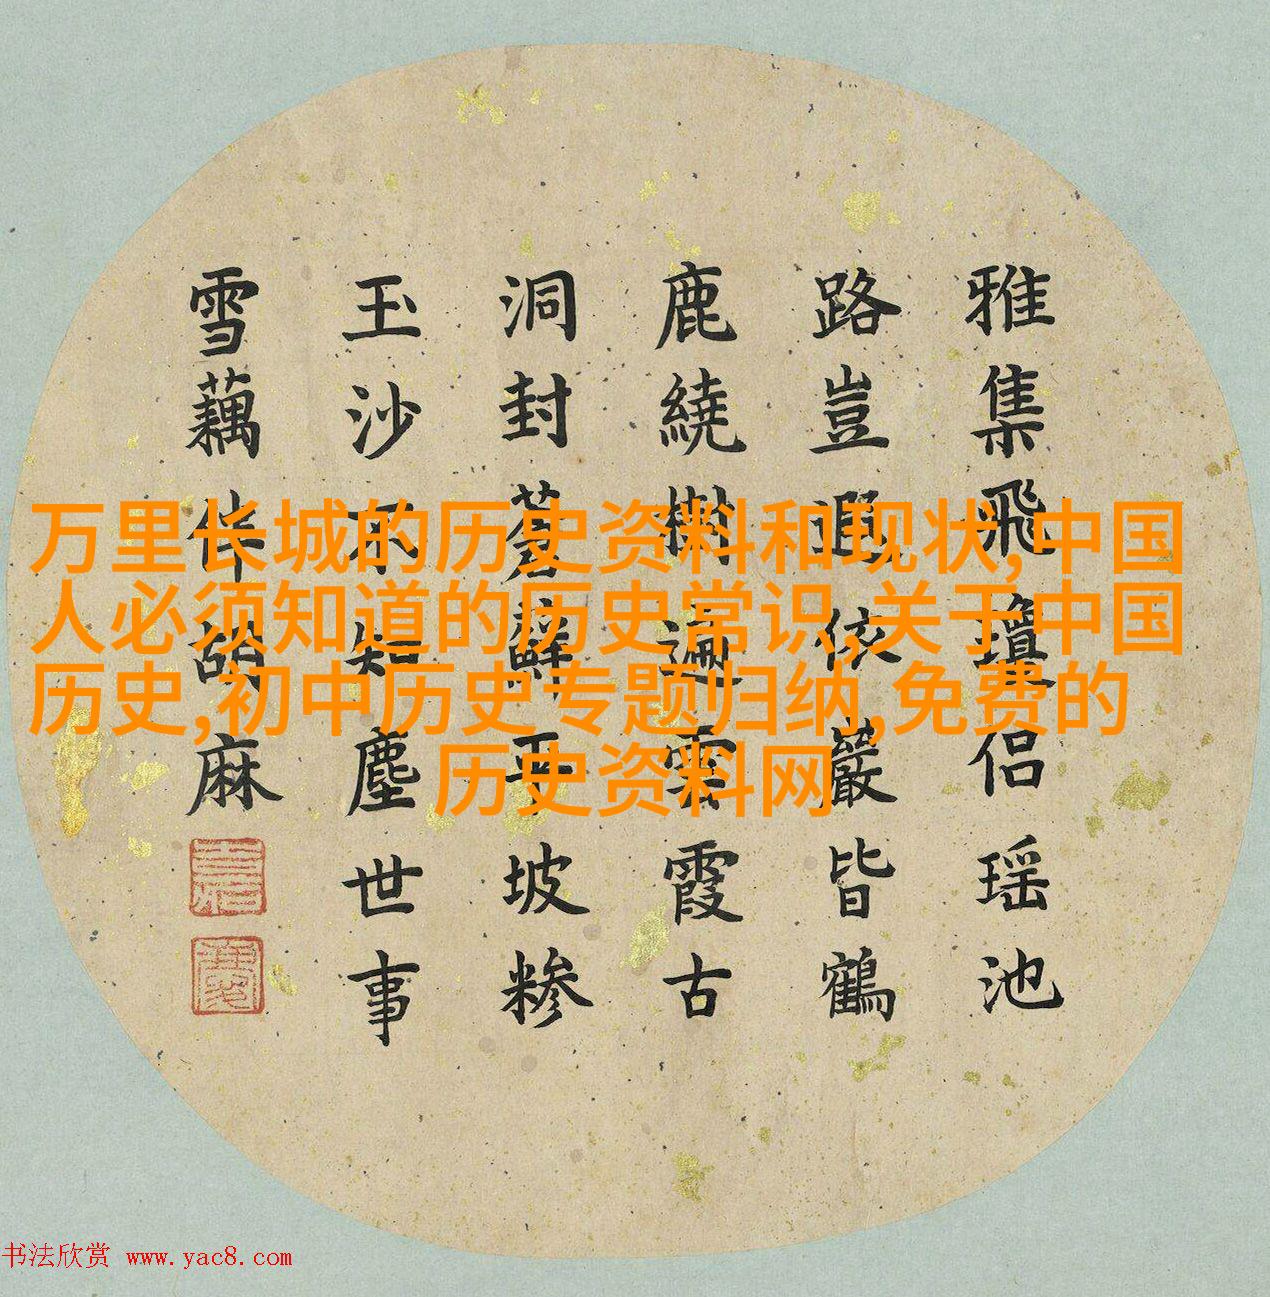 雅集飛瓊侶瑶池
路豈遐依巖皆鶴
鹿繞樹遍雲霞古
洞封蒼蘚平坡糁
玉沙不知塵世事
雪藕伴胡麻
万里长城的历史资料和现状,中国
人必须知道的历史常识,关于中国
历史,初中历史专题归纳,免费的
历史资料网
书法欣赏 www.yac8.com